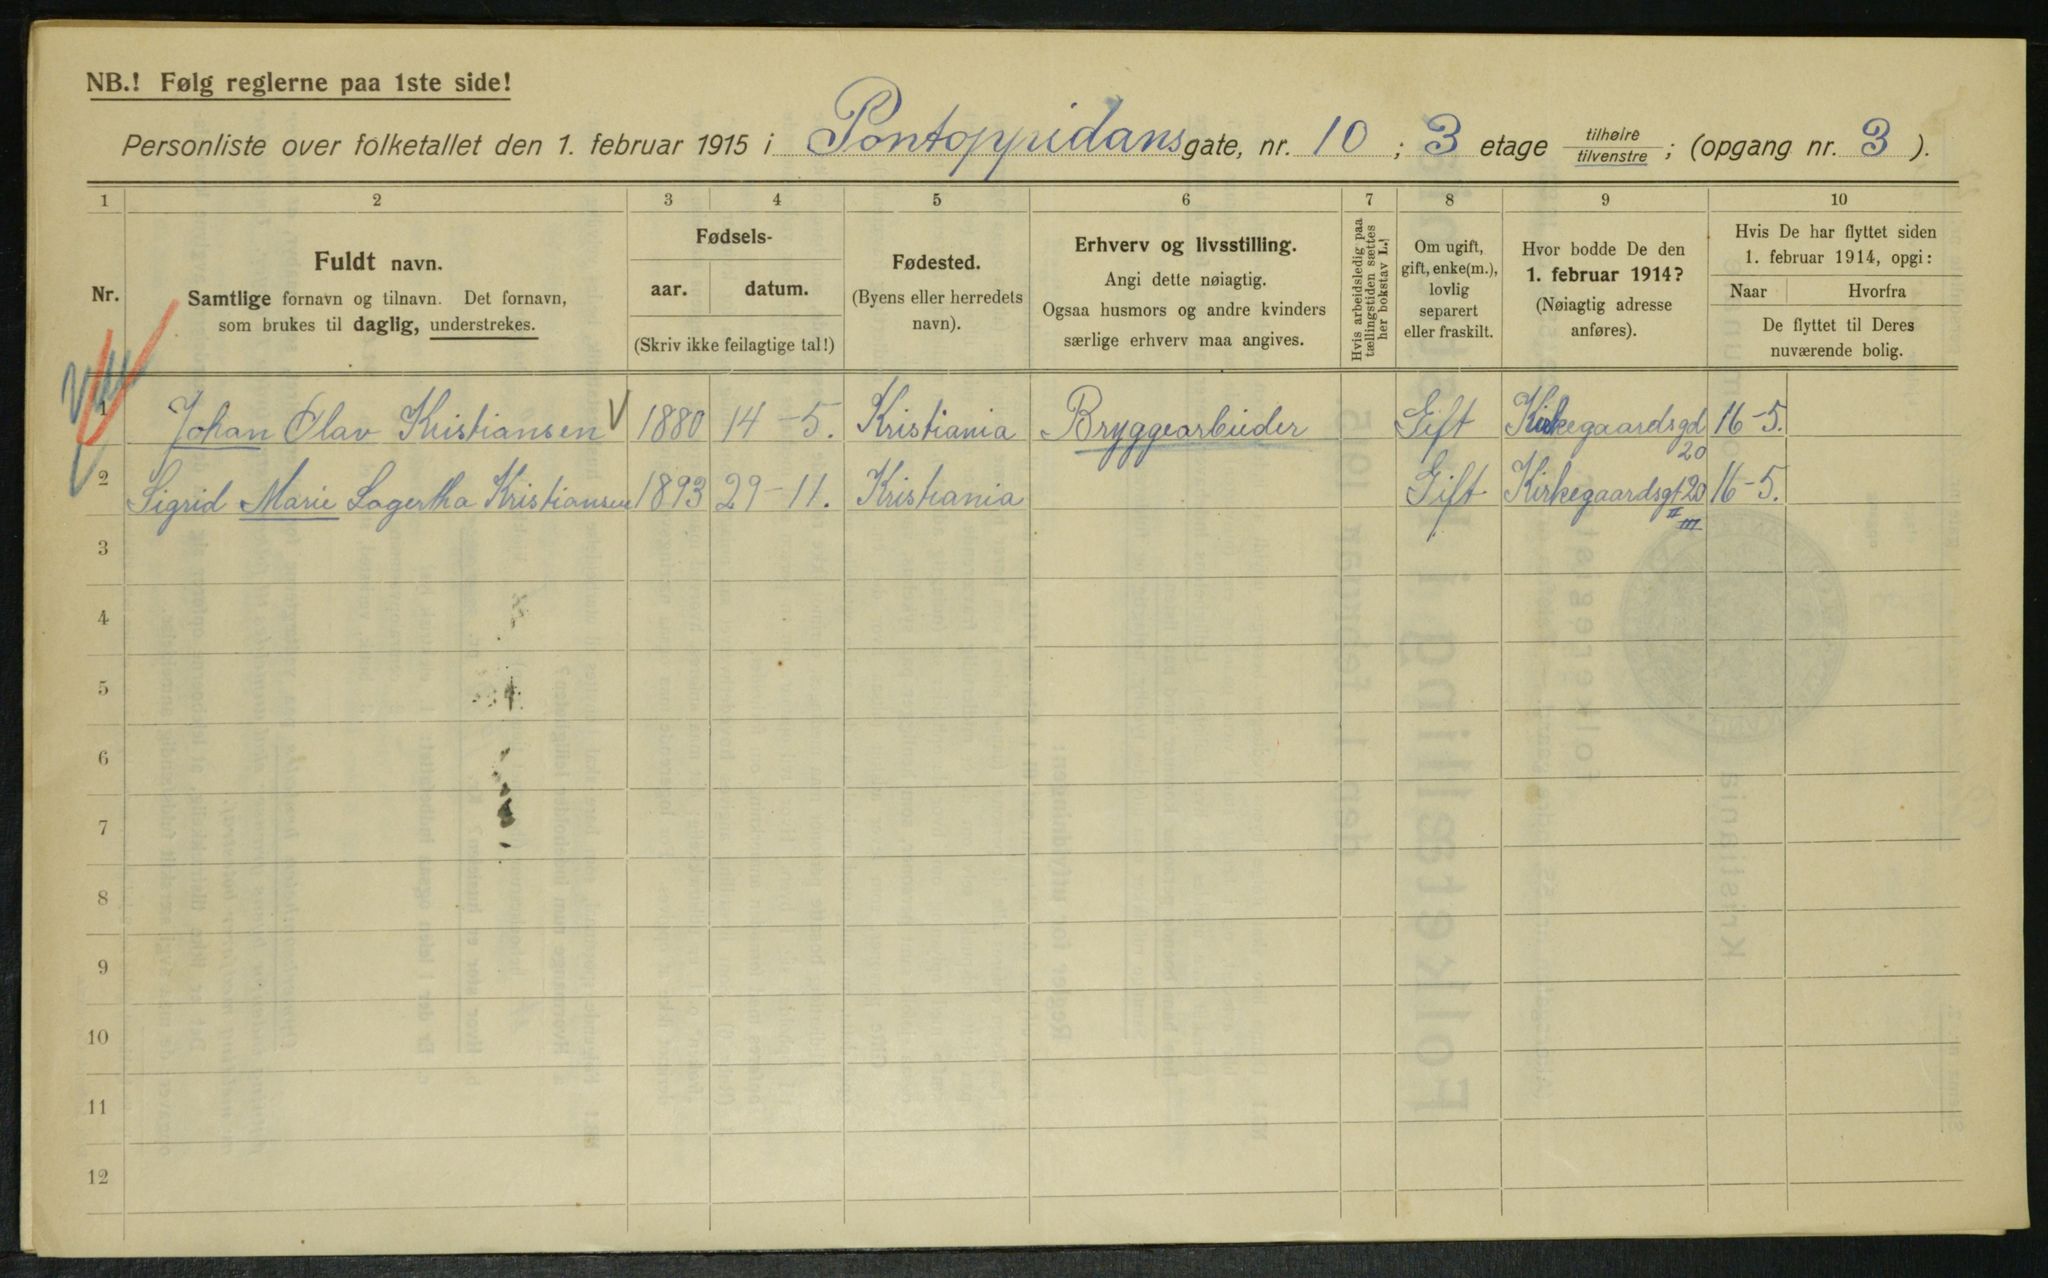 NB.! Følg reglerne paa 1ste side!
Personliste over folketallet den 1. februar 1915 i Pontoppidans gate, nr. 10 ; 3 etage tilhøire tilvenstre ; (opgang nr. 3 ).
1 2 3 4 5 6 7 8 9 10
Nr.
Fuldt navn.
Samtlige fornavn og tilnavn. Det fornavn,
som brukes til daglig, understrekes.
Fødsels-
aar. datum.
(Skriv ikke feilagtige tal!)
Fødested.
(Byens eller herredets
navn).
Erhverv og livsstilling.
Angi dette nøiagtig.
Ogsaa husmors og andre kvinders
særlige erhverv maa angives.
Hvis arbeidsledig paa
tællingstiden sættes
her bokstav L.!
Om ugift,
gift, enke(m.),
lovlig
separert
eller fraskilt.
Hvor bodde De den
1. februar 1914?
(Nøiagtig adresse
anføres).
Hvis De har flyttet siden
1. februar 1914, opgi:
Naar Hvorfra
De flyttet til Deres
nuværende bolig.
1 Johan Olav Kristiansen 1880 14-5. Kristiania Bryggearbeider Gift Kirkegaardsgd 20 16-5.
2 Sigrid Marie Lagertha Kristiansen 1893 29-11. Kristiania Gift Kirkegaardsgt 20 16-5.
II III
3
4
5
6
7
8
9
10
11
12